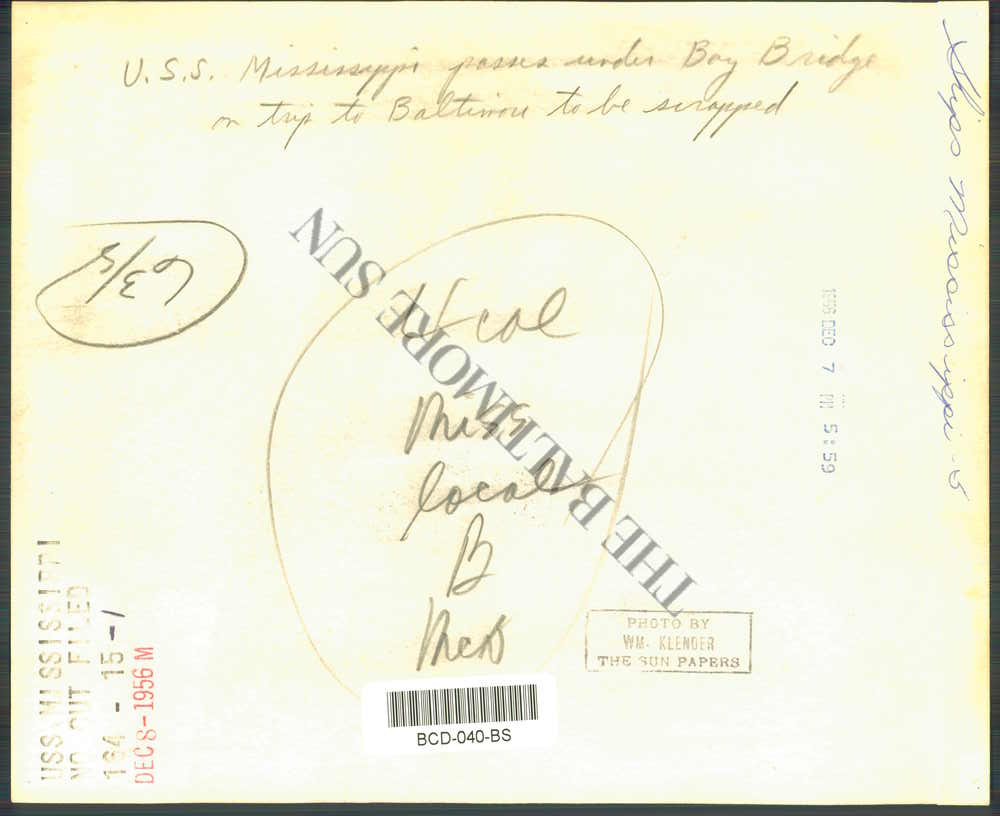 U.S.S. Mississippi passes under Bay Bridge
on trip to Baltimore to be scrapped
Ships Mississippi - S
6 3/5
THE BALTIMORE SUN
Miss
local
B
McD
1956 DEC 7 PM 5:59
PHOTO BY
WM. KLENDER
THE SUN PAPERS
USS MISSISSIPPI
NO CUT FILED
164 - 15 - 1
DEC 8-1956 M
BCD-040-BS